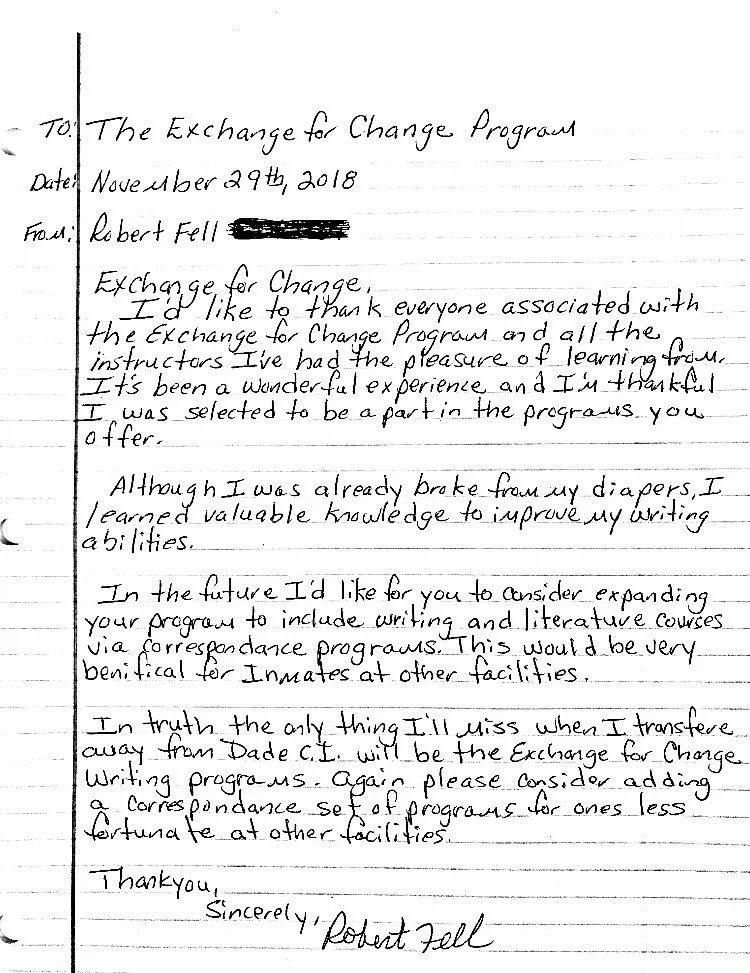 To: The Exchange for Change Program
Date: November 29th, 2018
From: Robert Fell
Exchange for Change,
I'd like to thank everyone associated with
the Exchange for Change Program and all the
instructors I've had the pleasure of learning from.
It's been a wonderful experience and I'm thankful
I was selected to be a part in the programs you
offer.
Although I was already broke from my diapers, I
learned valuable knowledge to improve my writing
abilities.
In the future I'd like for you to consider expanding
your program to include writing and literature courses
via correspondance programs. This would be very
benifical for Inmates at other facilities.
In truth the only thing I'll miss when I transfere
away from Dade C.I. will be the Exchange for Change
Writing programs. Again please consider adding
a correspondance set of programs for ones less
fortunate at other facilities.
Thankyou,
Sincerely,
Robert Fell